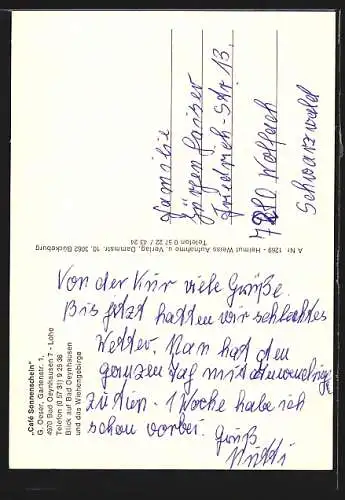 „Café Sonnenschein"
G. Oeser, Gartenstr. 1,
4970 Bad Oeynhausen 7 - Lohe
Telefon (0 57 31) 9 25 38
Blick auf Bad Oeynhausen
und das Wiehengebirge
Von der Kur viele Grüße.
Bis jetzt hatten wir schlechtes
Wetter. Man hat den
ganzen Tag mit
zu tun. 1 Woche habe ich
schon vorbei. Gruß
A Nr. 1269 - Helmut Weiss Aufnahme u. Verlag, Dammstr. 10, 3062 Bückeburg
Telefon 0 57 22 / 43 24
Familie
Jürgen
Friedrich-Str 13.
Wolfach
Schwarzwald